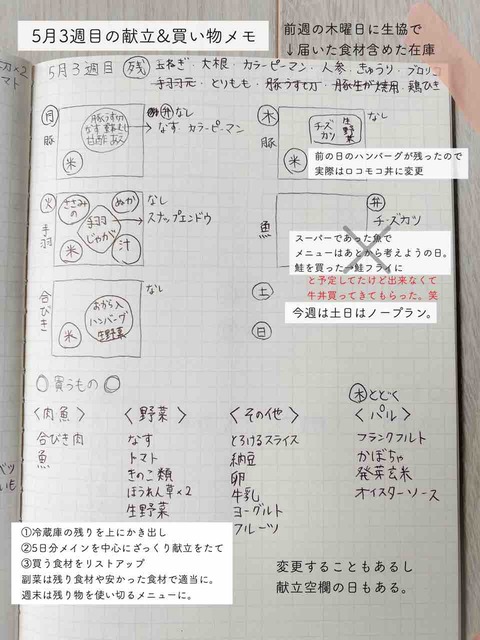 5月3週目の献立&買い物メモ
前週の木曜日に生協で
↓届いた食材含めた在庫
5月3週目 残 玉ねぎ・大根・カラーピーマン・人参・きゅうり・ブロッコリ
手羽元・とりもも・豚うす切・豚生が焼用・鶏ひき
×2
マト
月
豚
豚うす切
なす
甘酢あん
米
弁 なし
→なす カラーピーマン
木
豚
チーズ
カツ
生
野菜
米
なし
前の日のハンバーグが残ったので
実際はロコモコ丼に変更
火
手羽
ささみの
ぬか
手羽
じゃが
米
汁
なし
スナップエンドウ
魚
弁
チーズカツ
スーパーであった魚で
メニューはあとから考えようの日。
鮭を買った→鮭フライに
と予定してたけど出来なくて
牛丼買ってきてもらった。笑
合びき
おから入
ハンバーグ
生野菜
米
なし
土
日
今週は土日はノープラン。
買うもの
<肉魚>
合びき肉
魚
<野菜>
なす
トマト
きのこ類
ほうれん草×2
生野菜
<その他>
とろけるスライス
納豆
卵
牛乳
ヨーグルト
フルーツ
木とどく
<パル>
フランクフルト
かぼちゃ
発芽玄米
オイスターソース
①冷蔵庫の残りを上にかき出し
②5日分メインを中心にざっくり献立をたて
③買う食材をリストアップ
副菜は残り食材や安かった食材で適当に。
週末は残り物を使い切るメニューに。
変更することもあるし
献立空欄の日もある。